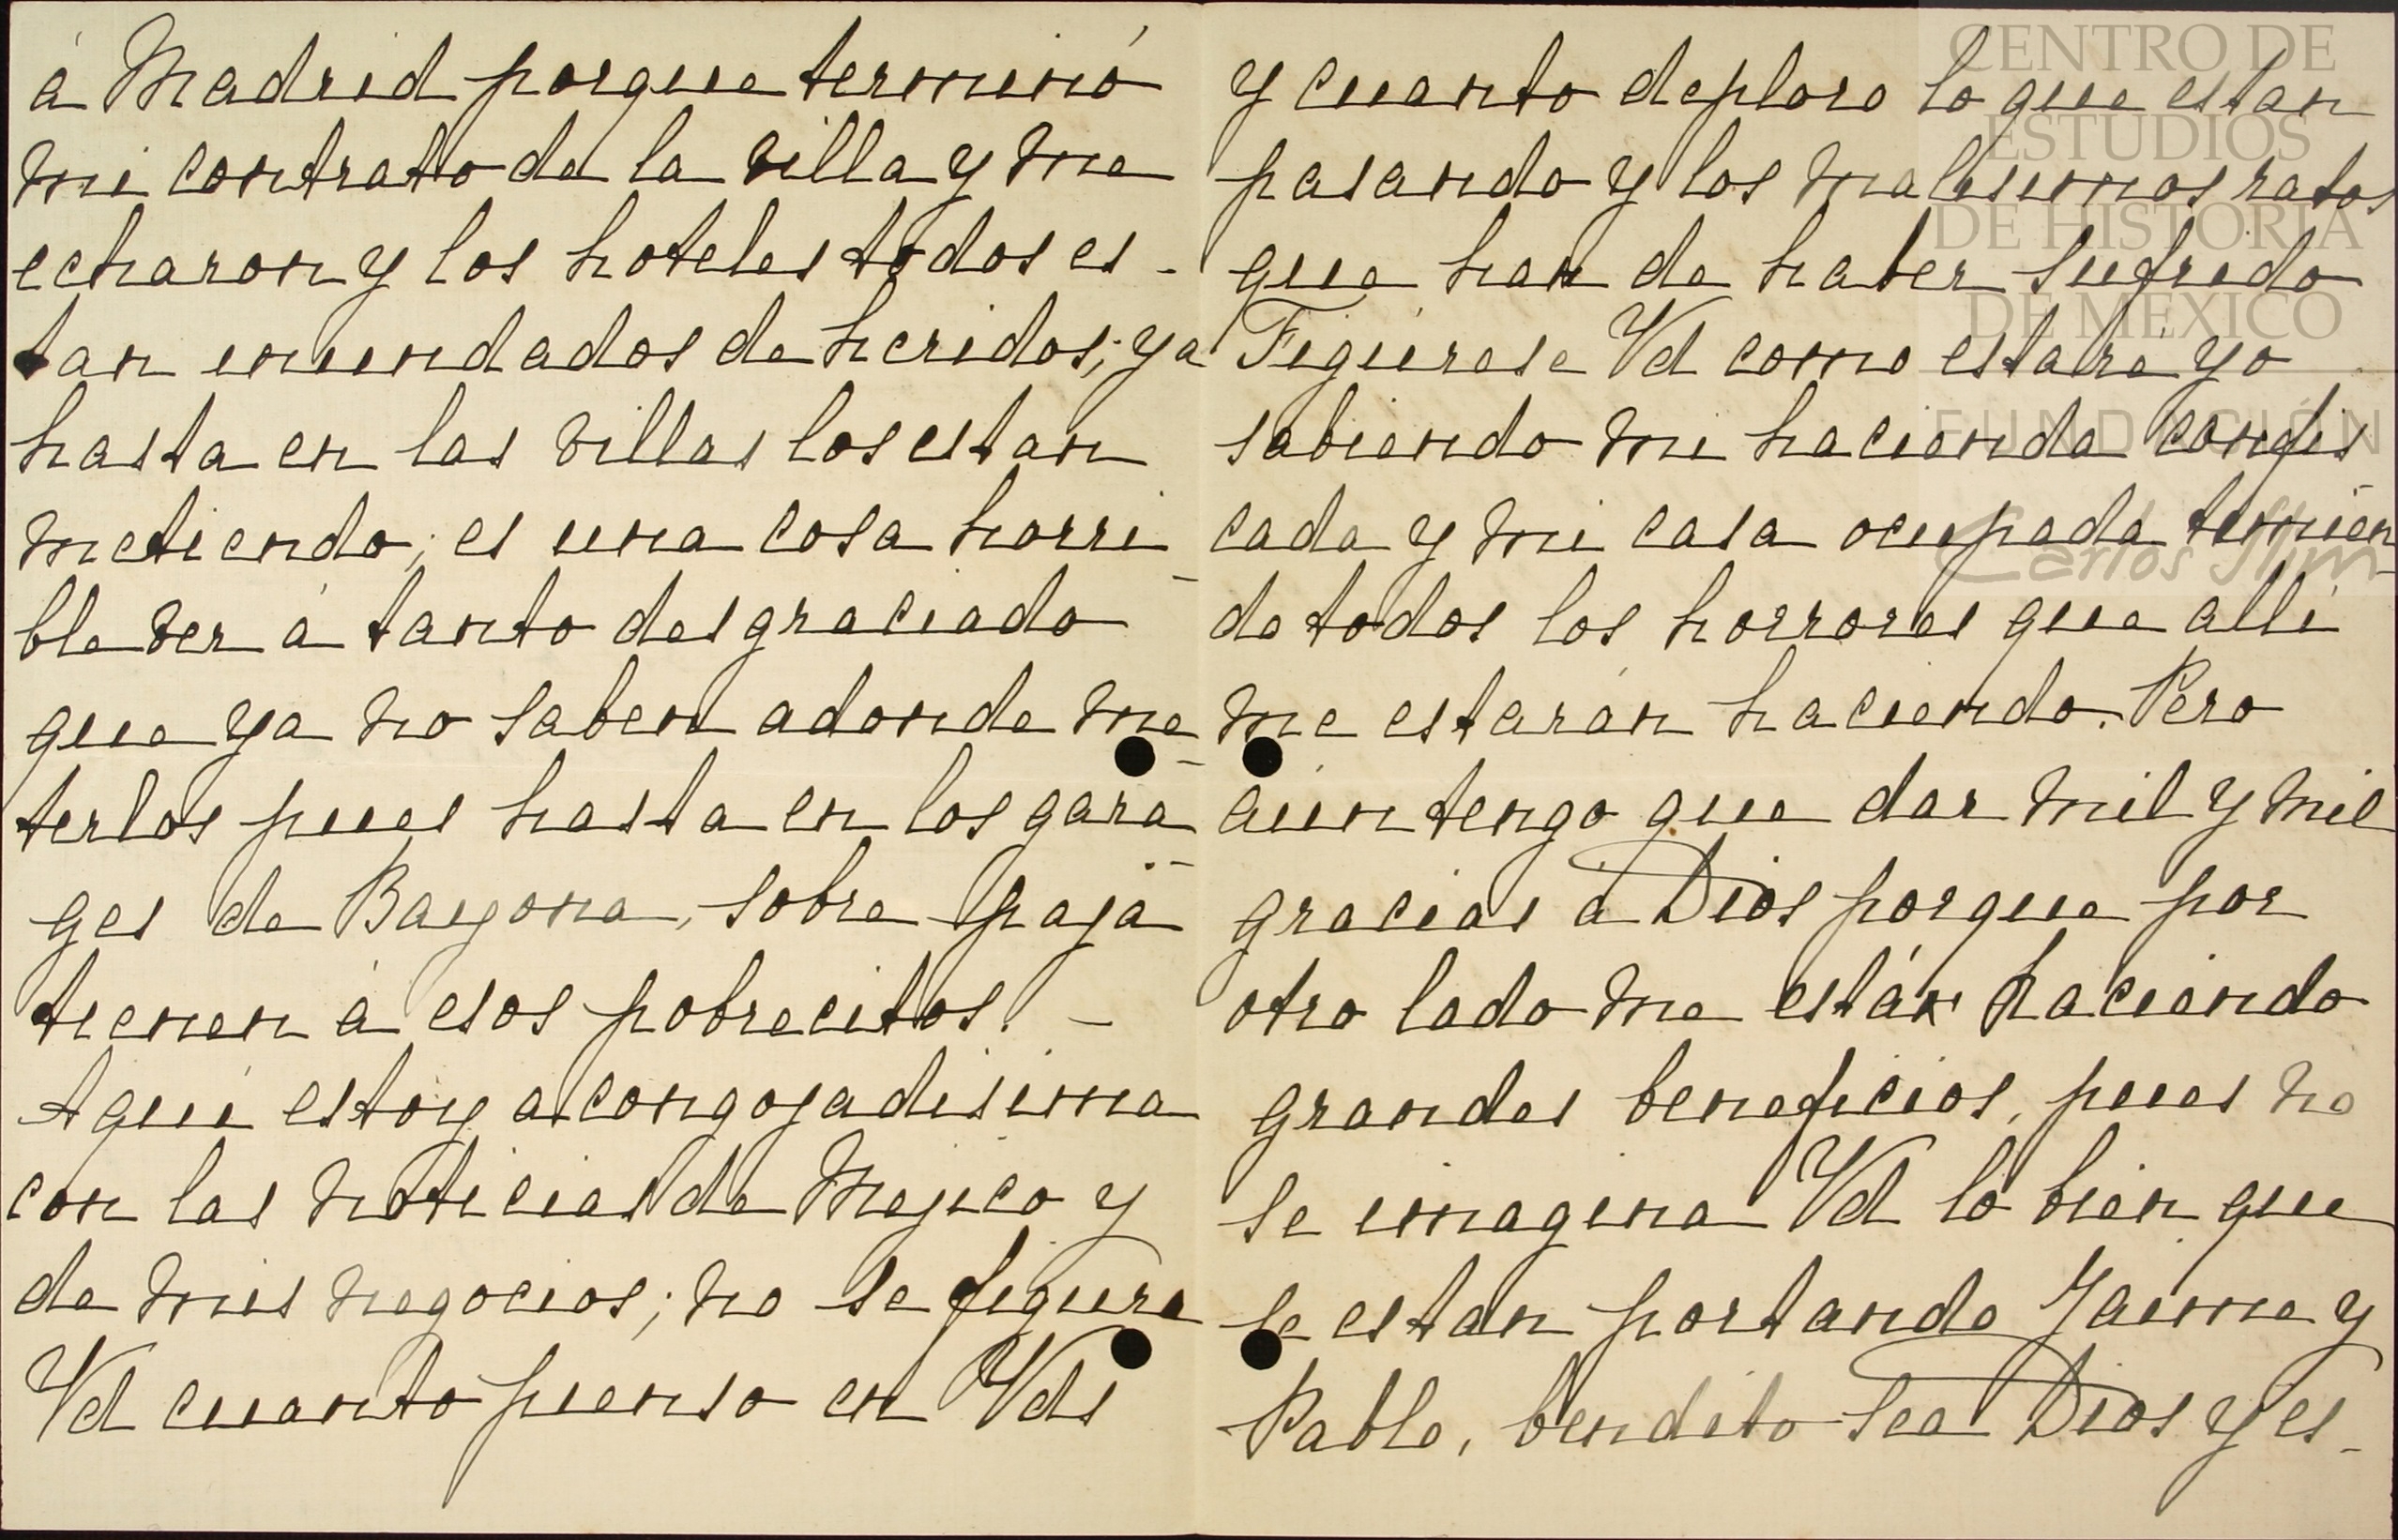 á Madrid porque terminó
mi contrato de la villa y me
echaron y los hoteles todos es-
tan inundados de heridos; ya
hasta en las villas los estan
metiendo; es una cosa horri-
ble ver á tanto desgraciado
que ya no saben adonde me-
terlos pues hasta en los gara-
ges de Bayona, sobre paja
tienen á esos pobrecitos! -
Aqui estoy acongojadisima
con las noticias de Mejico y
de mis negocios; no se figura
Vd cuanto pienso en Vds
y cuanto deploro lo que estan
pasando y los malisimos ratos
que han de haber sufrido
Figúrese Vd como estaré yo
sabiendo mi hacienda confis
cada y mi casa ocupada temien-
do todos los horrores que alli
me estarán haciendo. Pero
aún tengo que dar mil y mil
gracias á Dios porque por
otro lado me están haciendo
grandes beneficios, pues no
se imagina Vd lo bien que
se estan portando Jaime y
Pablo, bendito sea Dios y es-
CENTRO DE
ESTUDIOS
DE HISTORIA
DE MEXICO
FUNDACIÓN
Carlos Slim